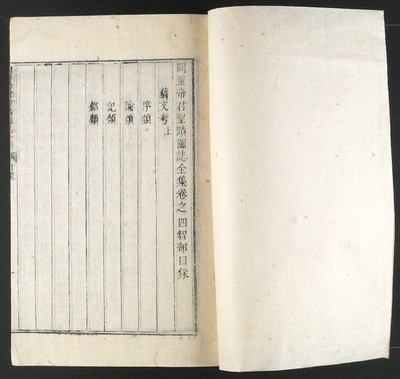 關聖帝君聖蹟圖誌全集卷之四智部目錄
藝文考上
序類
論類
記類
銘類